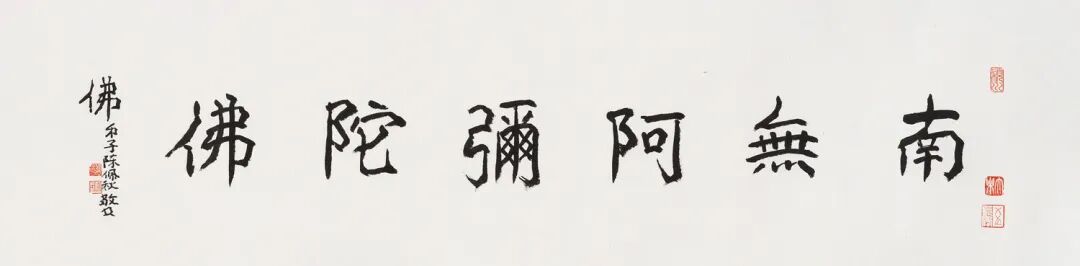 南無阿彌陀佛
佛弟子陈佩秋敬书